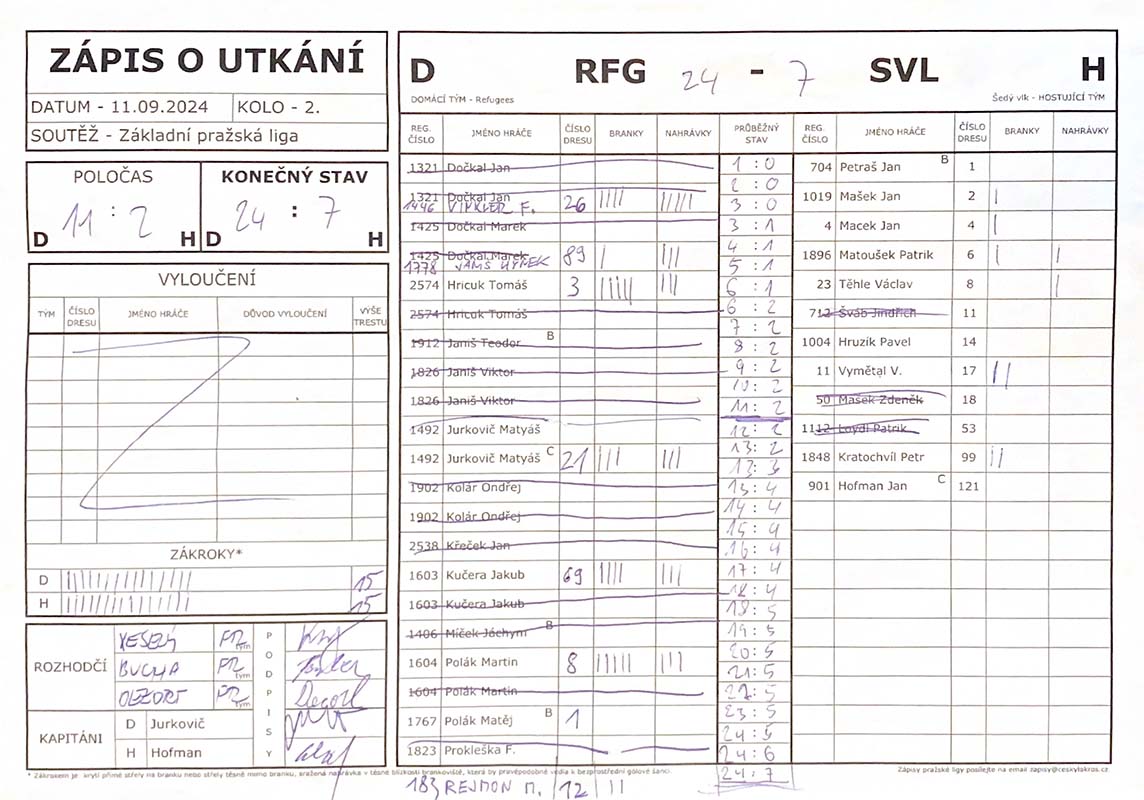 ZÁPIS O UTKÁNÍ
DATUM - 11.09.2024 KOLO - 2.
SOUTĚŽ - Základní pražská liga
POLOČAS
11 : 2
D H
KONEČNÝ STAV
24 : 7
D H
VYLOUČENÍ
TÝM ČÍSLO DRESU JMÉNO HRÁČE DŮVOD VYLOUČENÍ VÝŠE TRESTU
ZÁKROKY*
D 15
H 15
ROZHODČÍ
VESELÝ
BUCHA
tým
tým
tým
PODPISY
KAPITÁNI
D Jurkovič
H Hofman
D RFG 24 - 7 SVL H
DOMÁCÍ TÝM - Refugees Šedý vlk - HOSTUJÍCÍ TÝM
REG. ČÍSLO JMÉNO HRÁČE ČÍSLO DRESU BRANKY NAHRÁVKY
1321 Dočkal Jan
1321 Dočkal Jan
1446 VINKLER F. 26 |||| |||||
1425 Dočkal Marek
1425 Dočkal Marek
1778 JANIŠ HYNEK 89 | |||
2574 Hricuk Tomáš 3 ||||| |||
2574 Hricuk Tomáš
1912 Janiš Teodor B
1826 Janiš Viktor
1826 Janiš Viktor
1492 Jurkovič Matyáš
1492 Jurkovič Matyáš C 21 ||| |||
1902 Kolár Ondřej
1902 Kolár Ondřej
2538 Křeček Jan
1603 Kučera Jakub 69 |||| |||
1603 Kučera Jakub
1406 Míček Jáchym B
1604 Polák Martin 8 ||||| |||
1604 Polák Martin
1767 Polák Matěj B 1
1823 Prokleška F.
183 REJMON M. 12 ||
PRŮBĚŽNÝ STAV
1 : 0
2 : 0
3 : 0
3 : 1
4 : 1
5 : 1
6 : 1
6 : 2
7 : 2
8 : 2
9 : 2
10 : 2
11 : 2
12 : 2
13 : 2
13 : 3
13 : 4
14 : 4
15 : 4
16 : 4
17 : 4
18 : 4
18 : 5
19 : 5
20 : 5
21 : 5
22 : 5
23 : 5
24 : 5
24 : 6
24 : 7
REG. ČÍSLO JMÉNO HRÁČE ČÍSLO DRESU BRANKY NAHRÁVKY
704 Petraš Jan B 1
1019 Mašek Jan 2 |
4 Macek Jan 4 |
1896 Matoušek Patrik 6 | |
23 Těhle Václav 8 |
712 Šváb Jindřich 11
1004 Hruzík Pavel 14
11 Vymětal V. 17 ||
50 Mašek Zdeněk 18
1112 Loydl Patrik 53
1848 Kratochvíl Petr 99 ||
901 Hofman Jan C 121
* Zákrokem je krytí přímé střely na branku nebo střely těsně mimo branku, sražená nahrávka v těsné blízkosti brankoviště, která by pravěpodobně vedla k bezprostřední gólové šanci.
Zápisy pražské ligy posílejte na email zapisy@ceskylakros.cz